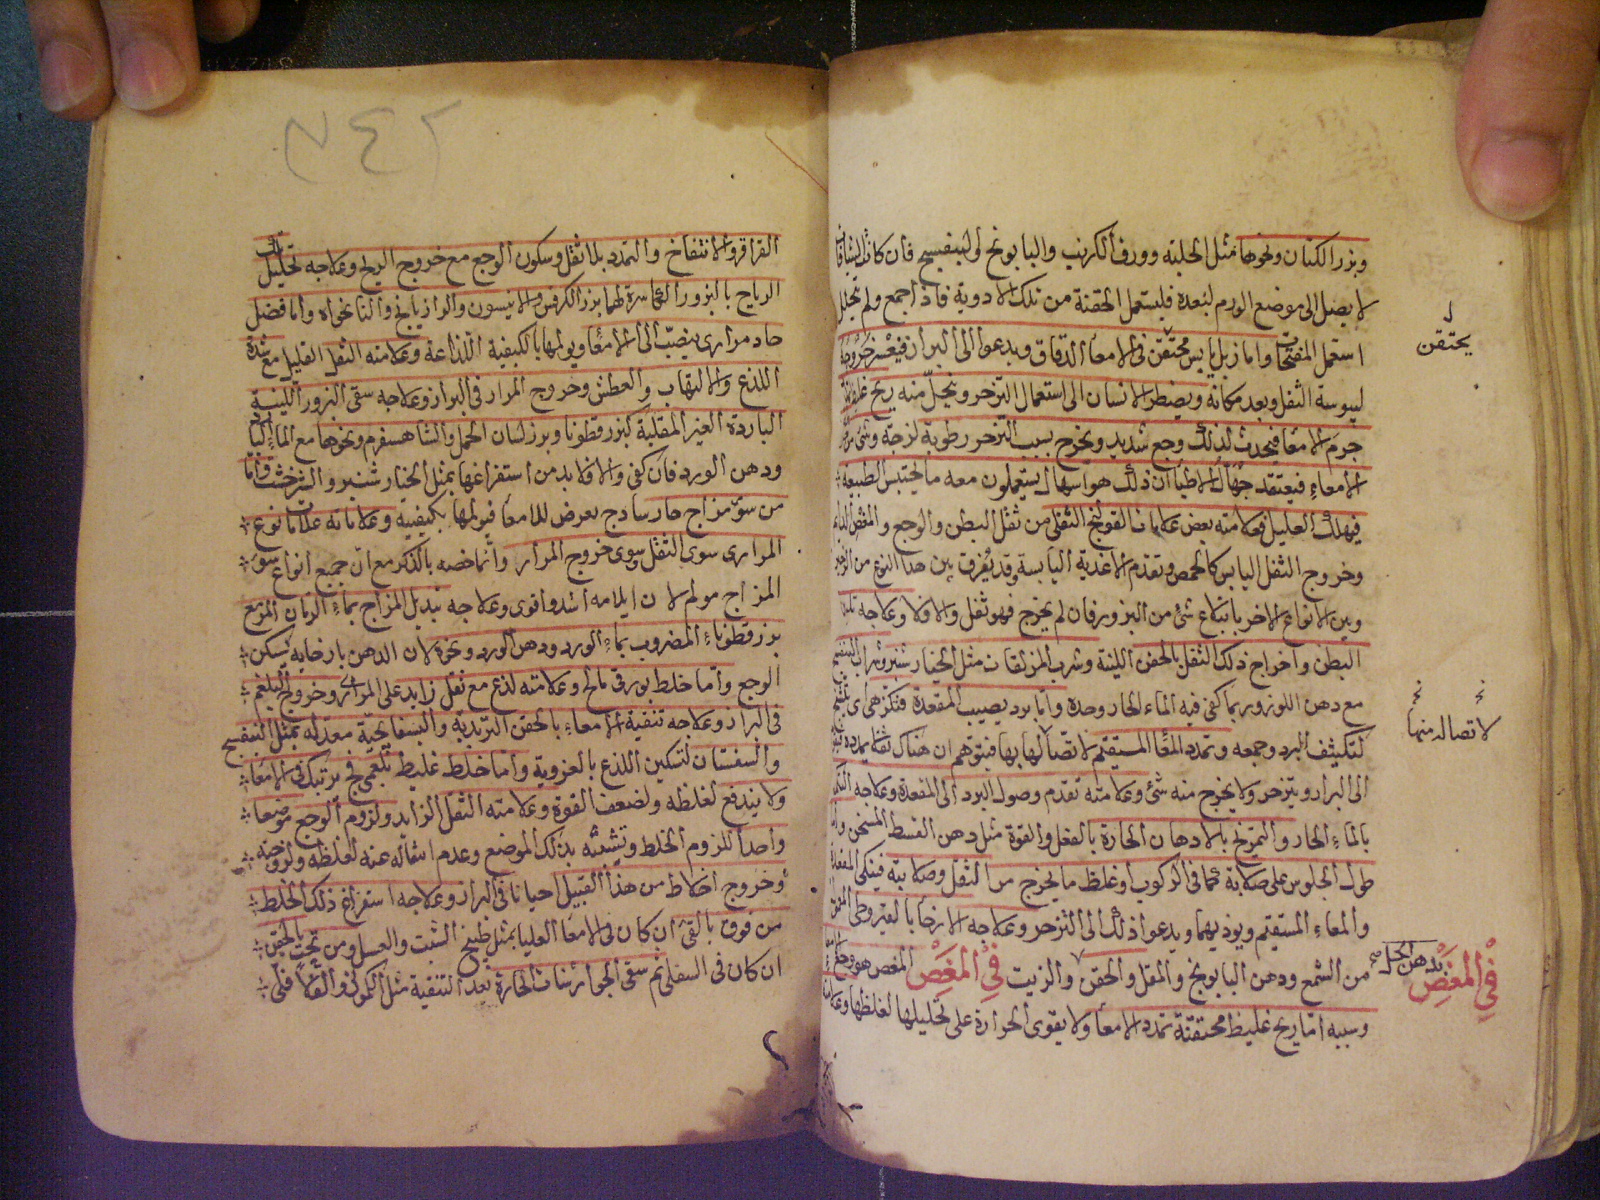 وبزر الكتان ونحوها بمثل الحلبة وورق الكرنب والبابونج والبنفسج فان كانت الشيافات
لا يصل الى موضع الورم لبعده فليستعمل الحقنة من تلك الادوية فاذا جمع ولم تحلل
استعمل المفتحات واما زبل يابس محتقن فى الامعا الدقاق ويدعوا الى البراز فيعسر خروجه
ليبوسة الثفل وبعد مكانه ويضطر الانسان الى استعمال التزحر وينحل منه ريح غليظة
جرم الامعا فيحدث لذلك وجع شديد ويخرج بسبب التزحر رطوبة لزجة وشئ من
الامعاء فيعتقد جهال الاطبا ان ذلك هو اسهال يستعملون معه ما يحتبس الطبيعة
فيهلك العليل فعلامته بعض علامات القولنج الثفلى من ثقل البطن والوجع والمغص
وخروج الثفل اليابس كالحمص وتقدم الاغذية اليابسة وقد يفرق بين هذا النوع من الزحير
وبين الانواع الاخر بابتلاع شئ من البزور فان لم يخرج فهو ثفل والا فلا وعلاجه تليين
البطن واخراج ذلك الثفل بالحقن اللينة وشرب المزلقات مثل الخيار شنبر وشراب البنفسج
مع دهن اللوز وربما كفى فيه الماء الحار وحده واما برد يصيب المقعدة فتكز هى
لتكثيف البرد وجمعه وتمدد المعا المستقيم لاتصالها بها فيتوهم ان هناك ثفلا
الى البراز ويتزحر ولا يخرج منه شئ وعلامته تقدم وصول البرد الى المقعدة وعلاجه
بالماء الحار والتمريخ بالادهان الحارة بالفعل والقوة مثل دهن القسط المسخن واما
طول الجلوس على صلابة كما فى الركوب او غلظ ما يخرج من الثفل وصلابته فينكى المقعدة
والمعاء المستقيم ويوذيهما ويدعوا ذلك الى التزحر وعلاجه الارخا بالقيروطى
من الشمع ودهن البابونج والمقل والحقن والزيت فى المغص المغص هو وجع
وسببه اما ريح غليظ محتقنة تمدد الامعا ولا يقوى الحرارة على تحليلها لغلظها
يحتقن
لاتصاله منها
بدهن الحل
فى المغص
٢٤٧
القراقر والانتفاخ والتمدد بلا ثقل وسكون الوجع مع خروج الريح وعلاجه تحليل تلك
الرياح بالبزور الكاسرة لها بزر الكرفس والانيسون والرازيانج والنانخواه واما فضل
حاد مرارى ينصب الى الامعا ويولمها بالكيفية اللذاعة وعلامته الثقل القليل مع شدة
اللذع والالتهاب والعطش وخروج المرار فى البراز وعلاجه سقى البزور اللينة
الباردة الغير المقلية كبزر قطونا وبزر لسان الحمل والشاهسفرم ونحوها مع الماء
ودهن الورد فان كفى والا فلا بد من استفراغها بمثل الخيار شنبر والشيرخشت واما
من سوء مزاج حار ساذج يعرض للامعا فيولمها بكيفيته وعلاماته علامات نوع
المرارى سوى الثقل وسوى خروج المرار وانما خصه بالذكر مع ان جميع انواع سوء
المزاج مولم لان ايلامه اشد واقوى وعلاجه تبديل المزاج بماء الرمان المز مع
بزر قطوناء المضروب بماء الورد ودهن الورد ونحوه لان الدهن بارخايه يسكن
الوجع واما خلط بورقى مالح وعلامته لذع مع ثقل زايد على المرارى وخروج البلغم
فى البراز وعلاجه تنقية الامعاء بالحقن التربدية والبسفايجية معدلة بمثل البنفسج
والسفستان لتسكين اللذع بالغروية واما خلط غليظ بلغمى لزج يرتبك فى الامعاء
ولا يندفع لغلظه ولضعف القوة وعلامته الثقل الزايد ولزوم الوجع موضعا
واحدا للزوم الخلط وتشبثه بذلك الموضع وعدم انتقاله عنه لغلظه ولزوجته
وخروج اخلاط من هذا القبيل احيانا فى البراز وعلاجه استفراغ ذلك الخلط
من فوق بالقئ ان كان فى الامعا العليا بمثل طبيخ الشبت والعسل ومن تحت بالحقن
ان كان فى السفلى ثم سقى الجوارشنات الحارة بعد التنقية مثل الكمونى